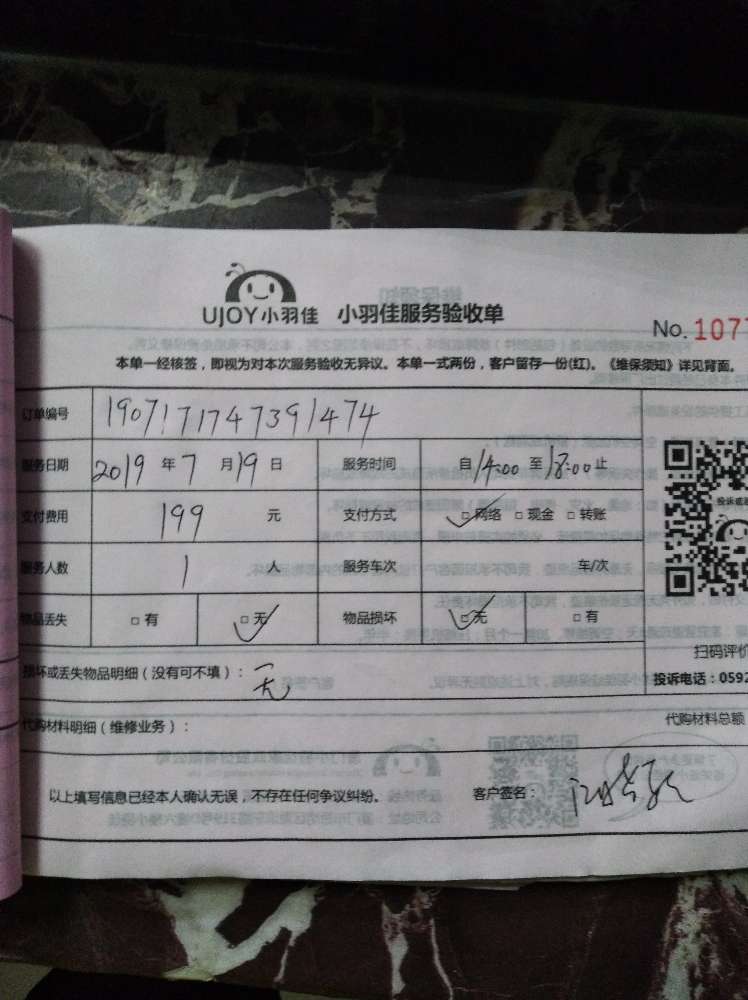 UJOY小羽佳 小羽佳服务验收单
No. 1077
本单一经核签，即视为对本次服务验收无异议。本单一式两份，客户留存一份(红)。《维保须知》详见背面。
订单编号 1907171747391474
服务日期 2019 年 7 月 19 日 服务时间 自 14:00 至 18:00 止
支付费用 199 元 支付方式 ☑ 网络 □ 现金 □ 转账
服务人数 1 人 服务车次 车/次
物品丢失 □ 有 ☑ 无 物品损坏 ☑ 无 □ 有
损坏或丢失物品明细（没有可不填）： 无
扫码评价
投诉电话：0592
代购材料明细（维修业务）：
代购材料总额
以上填写信息已经本人确认无误，不存在任何争议纠纷。 客户签名：